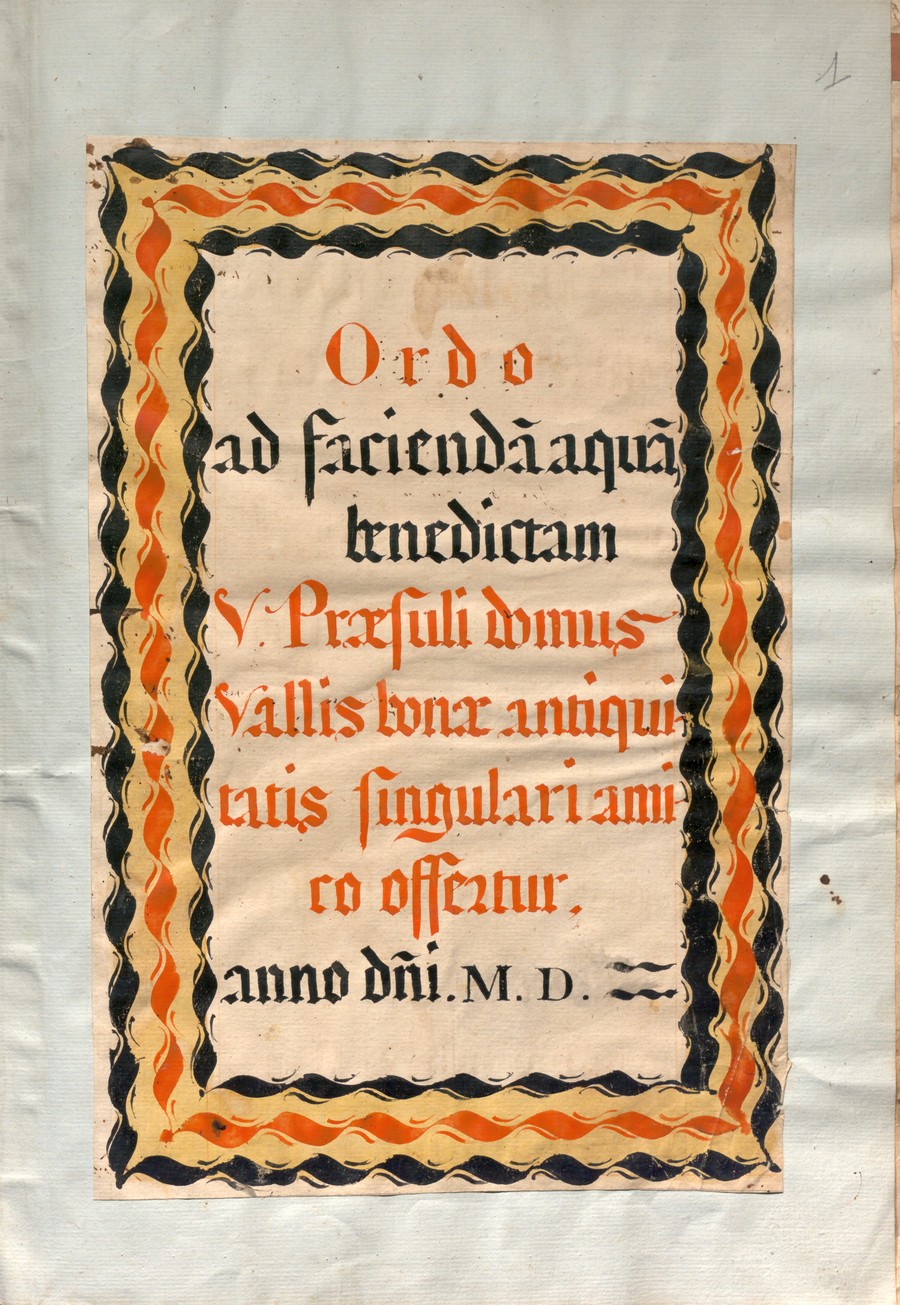 1
Ordo
ad faciendã aquã
benedictam
V. Præſuli domus
Vallis bonæ antiqui-
tatis ſingulari ami-
co offertur.
anno dñi. M. D.